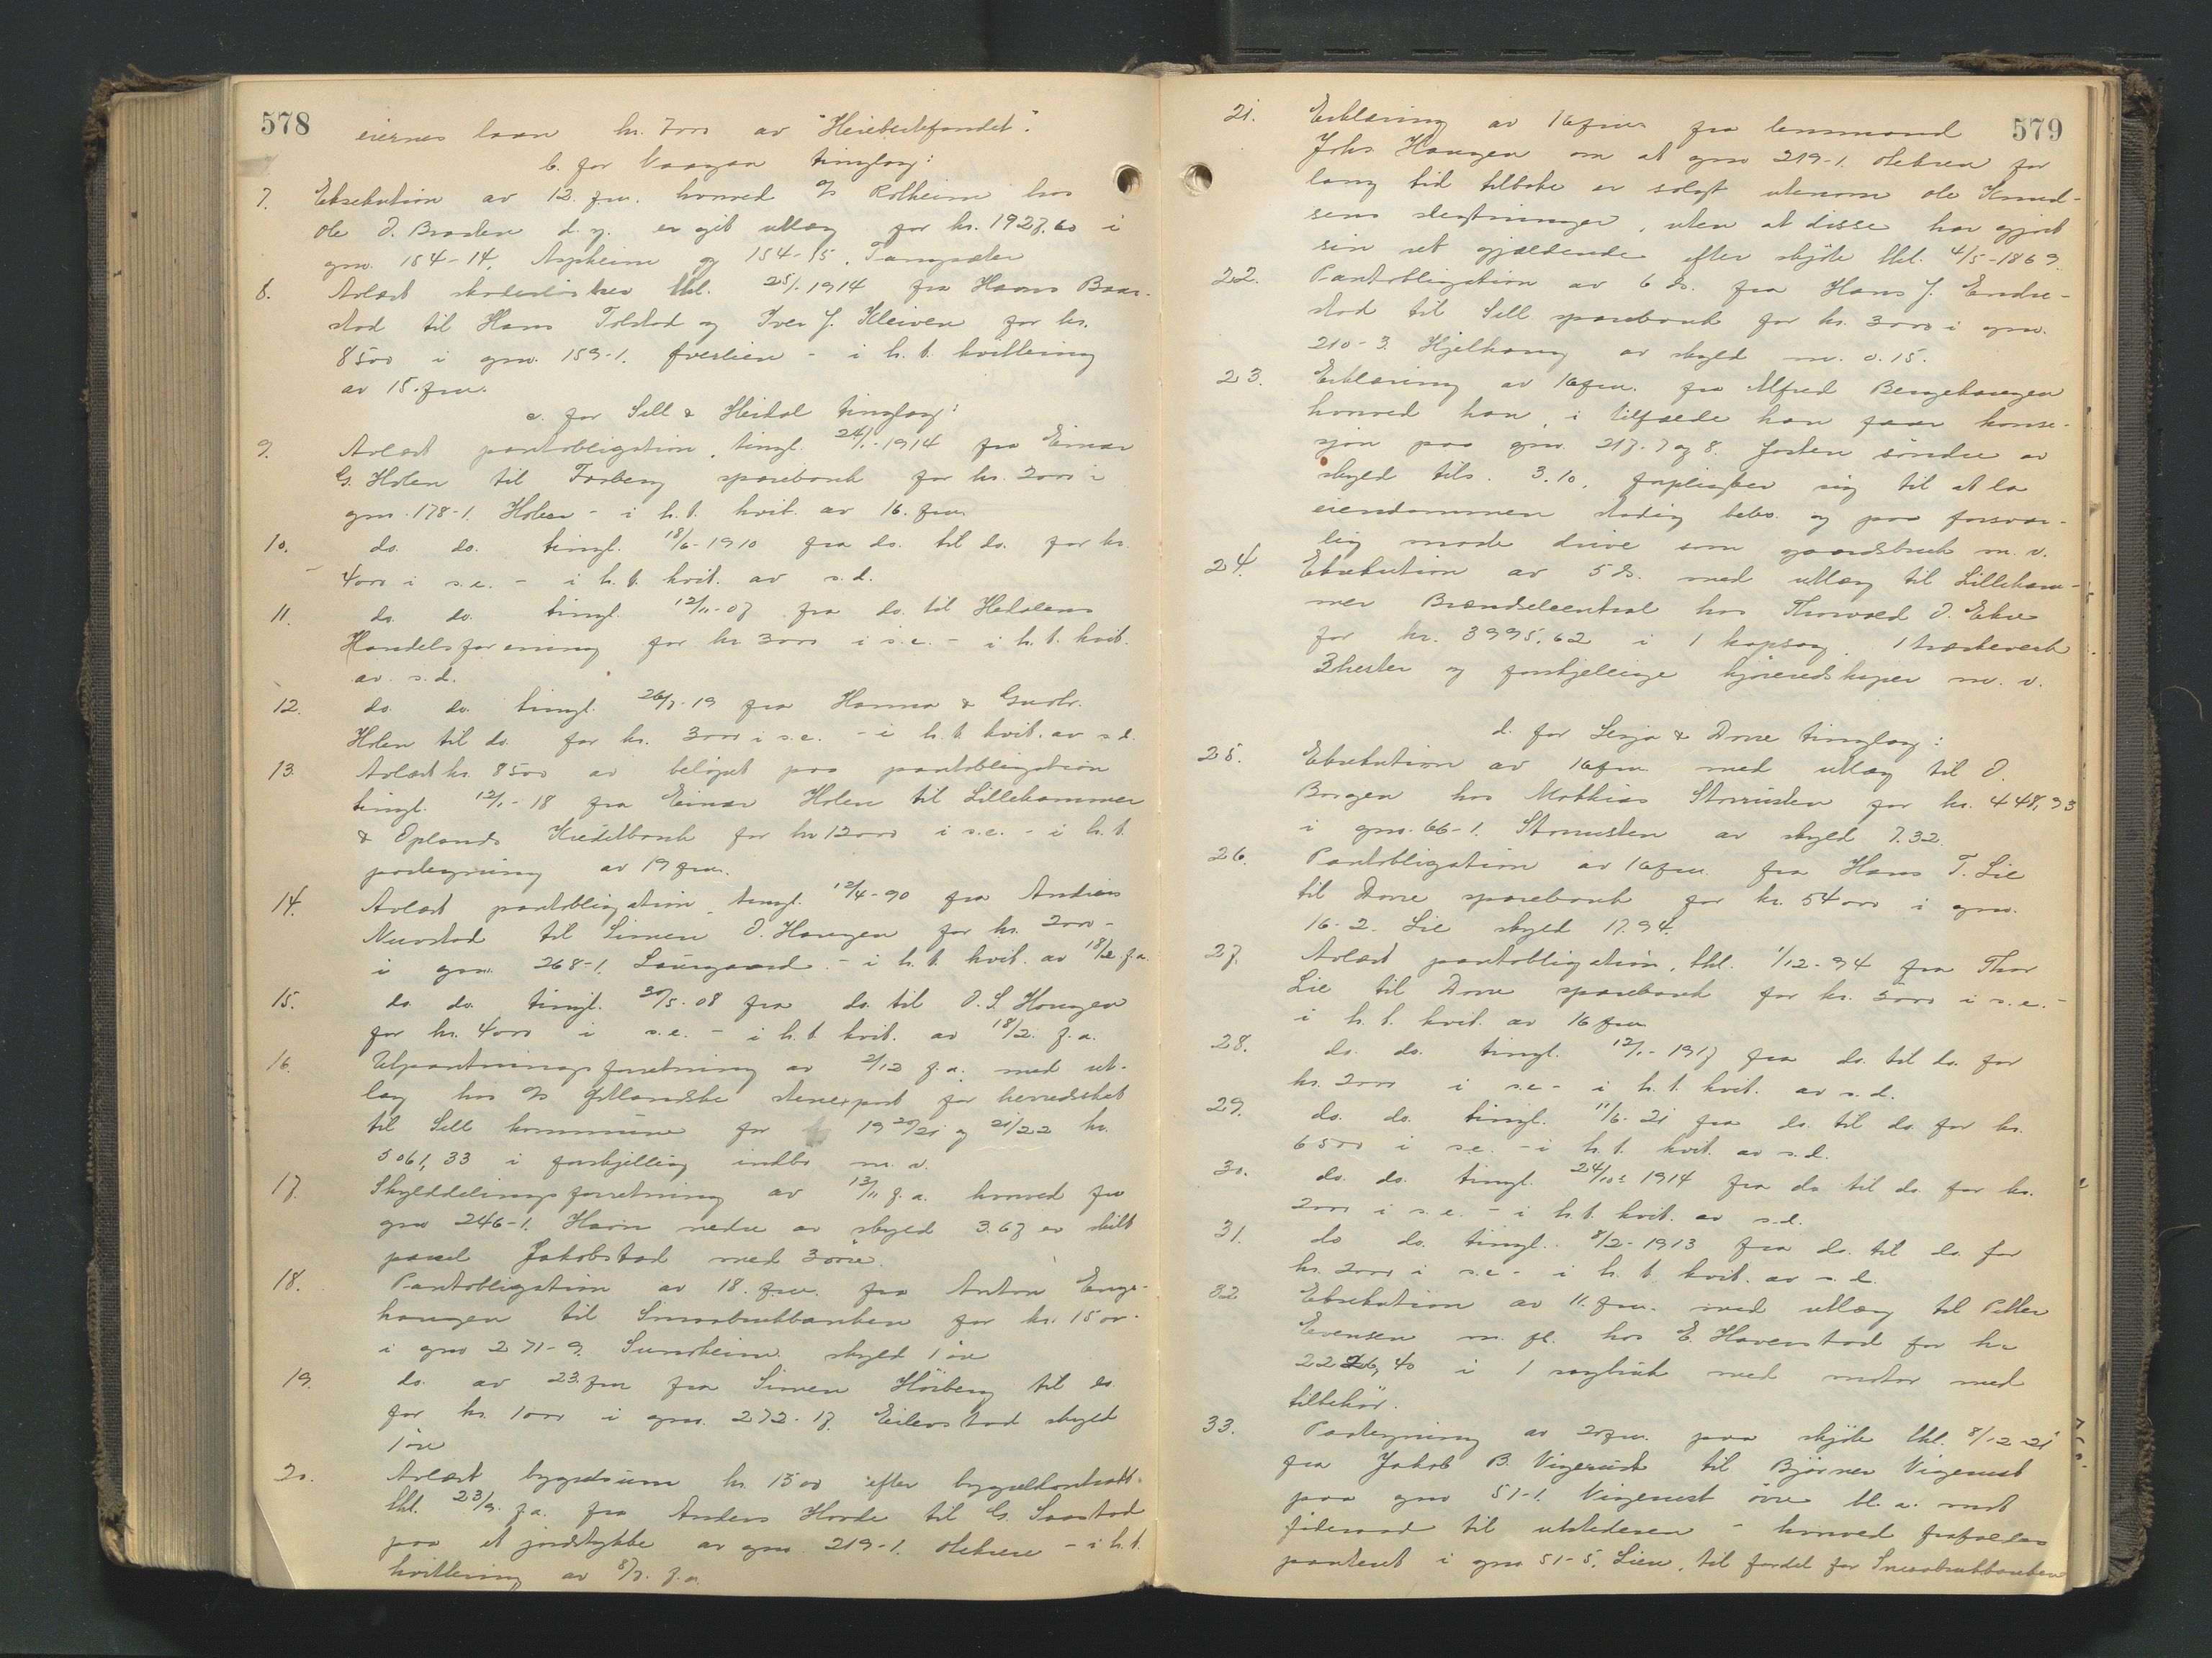 578
eiernes laan kr. 7000 av "Heiebertefondet".
b. for Vaagaa tinglag:
7. Eksekution av 12. f.m. hvorved A/s Rolheim hos
Ole O. Braaten d.y. er git utlæg for kr. 1927.60 i
gno. 154-14, Aspheim og 154-15,
8. Avlæst skadesløsbrev tkl. 25/1. 1914 fra Hans Baar-
stad til Hans Tolstad og Iver J. Kleiven for kr.
8500 i gno. 159-1. Øverlien - i h.t. kvittering
av 15. f.m.
c. for Sell & Heidal tinglag:
9. Avlæst pantobligation, tingl. 24/1.-1914 fra Einar
G. Holen til Forberg sparebank for kr. 2000 i
gno. 178-1. Holen - i h.t. kvit. av 16. f.m.
10. do. do. tingl. 18/6-1910 fra do. til do. for kr.
4000 i s.e. - i h.t. kvit. av s.d.
11. do. do. tingl. 12/11-07 fra do. til Hedalens
Handelsforening for kr 3000 i s.e. - i h.t. kvit.
av s.d.
12. do. do. tingl. 26/7-19 fra Hanna & Gudbr.
Holen til do. for kr. 3000 i s.e. - i h.t. kvit. av s.d.
13. Avlæst kr. 8500 av beløpet paa pantobligation
tingl. 12/1-18 fra Einar Holen til Lillehammer
& Oplands Kreditbank for kr 12000 i s.e. - i h.t.
paategning av 19 f.m.
14. Avlæst pantobligation, tingl. 12/4-90 fra Andreas
Nuvstad til Simen O. Haugen for kr. 2000 -
i gno. 268-1. Laurgaard. - i h.t. kvit. av 18/2 f.a.
15. do. do. tingl. 30/5-08 fra do. til O. S. Haugen
for kr. 4000 i s.e. - i h.t. kvit. av 18/2. f.a.
16. Utpantningsforretning av 2/12 f.a. med ut-
læg hos A/s Østlandske stenexport for herredsskat
til Sell kommune for 19 20/21 og 21/22 kr.
5061,33 i forskjellig indbo m.v.
17. Skylddelingsforretning av 13/11 f.a. hvorved fra
gno 246-1. Harin nedre av skyld 3.67 er skilt
parcel Jakobstad med 3 øre.
18. Pantobligation av 18. f.m. fra Anton Enge-
haugen til Smaabrukbanken for kr. 1500.
i gno 271-9. Sundheim skyld 1 øre
19. do. av 23. f.m. fra Simen Høiberg til do.
for kr. 1000 i gno. 272-17. Eilevstad skyld
1 øre
20. Avlæst bygselsum kr. 1500 efter bygselkontrakt
tkl. 23/9. f.a. fra Anders Horde til G. Saastad
paa et jordstykke av gno 219-1. Olekren - i h.t.
kvittering av 8/7. f.a.
579
21. Erklæring av 16 f.m. fra lensmand
Johs. Haugen om at gno 219-1. Olekren for
lang tid tilbake er solgt utenom Ole Knud-
sens slegtninger, uten at disse har gjort
sin ret gjældende efter skjøte tkl. 4/5-1869.
22. Pantobligation av 6 ds. fra Hans J. Endre-
stad til Sell sparebank for kr. 3000 i gno.
210-3. Hjelhaug av skyld m. 0.15.
23. Erklæring av 16 f.m. fra Alfred Bergehaugen
hvorved han, i tilfælde han faar konse-
sjon paa gno. 217-7 og 8. Jorden søndre av
skyld tils. 3.10, forpligter sig til at la
eiendommen stadig bebo og paa forsvar-
lig maate drive som gaardsbruk m.v.
24. Eksekution av 5 ds. med utlæg til Lilleham-
mer Brændselcentral hos Thorvald O. Ekre
for kr. 3995.62 i 1 kapsag. 1
3 hester og forskjellige kjøreredskaper m.v.
d. for Lesja & Dovre tinglag:
25. Eksekution av 16 f.m. med utlæg til O.
Borgen hos Mathias Storrusten for kr. 448,93
i gno. 66-1. Storrusten av skyld 7.32.
26. Pantobligation av 16 f.m. fra Hans T. Lie
til Dovre sparebank for kr. 54000 i gno.
16-2. Lie skyld 17.94.
27. Avlæst pantobligation, tkl. 1/12-94 fra Thor
Lie til Dovre sparebank for kr. 5000 i s.e. -
i h.t. kvit. av 16 f.m.
28. do. do. tingl. 12/1-1917 fra do. til do. for
kr. 2000 i s.e - i h.t. kvit. av s.d.
29. do. do. tingl. 11/6-21 fra do. til do. for kr.
6500 i s.e. - i h.t. kvit. av s.d.
30. do. do. tingl. 24/10 1914 fra do til do. for kr.
2000 i s.e. - i h.t. kvit. av s.d.
31. do do. tingl. 8/2-1913 fra do. til do. for
kr. 2000 i s.e - i h.t. kvit. av s.d.
32 Eksekution av 11. f.m. med utlæg til Petter
Evensen m. fl. hos E. Haverstad for kr
2226,40 i 1 sagbruk med motor med
tilbehør.
33. Paategning av 20 f.m. paa skjøte tkl. 8/12-21
fra Jakob B. Vigerust til Bjørner Vigerust
paa gno 51-1. Vigerust øvre bl.a. mot
føderaad til utstederen - hvorved frafaldes
panteret i gno 51-5. Lien, til fordel for Smaabrukbanken